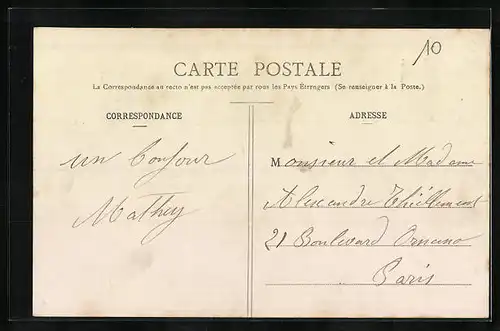 10
CARTE POSTALE
La Correspondance au recto n'est pas acceptée par tous les Pays Étrangers (Se renseigner à la Poste.)
CORRESPONDANCE
un bonjour
Mathey
ADRESSE
Monsieur et Madame
Alexandre Thiéllement
21 Boulevard Ornano
Paris